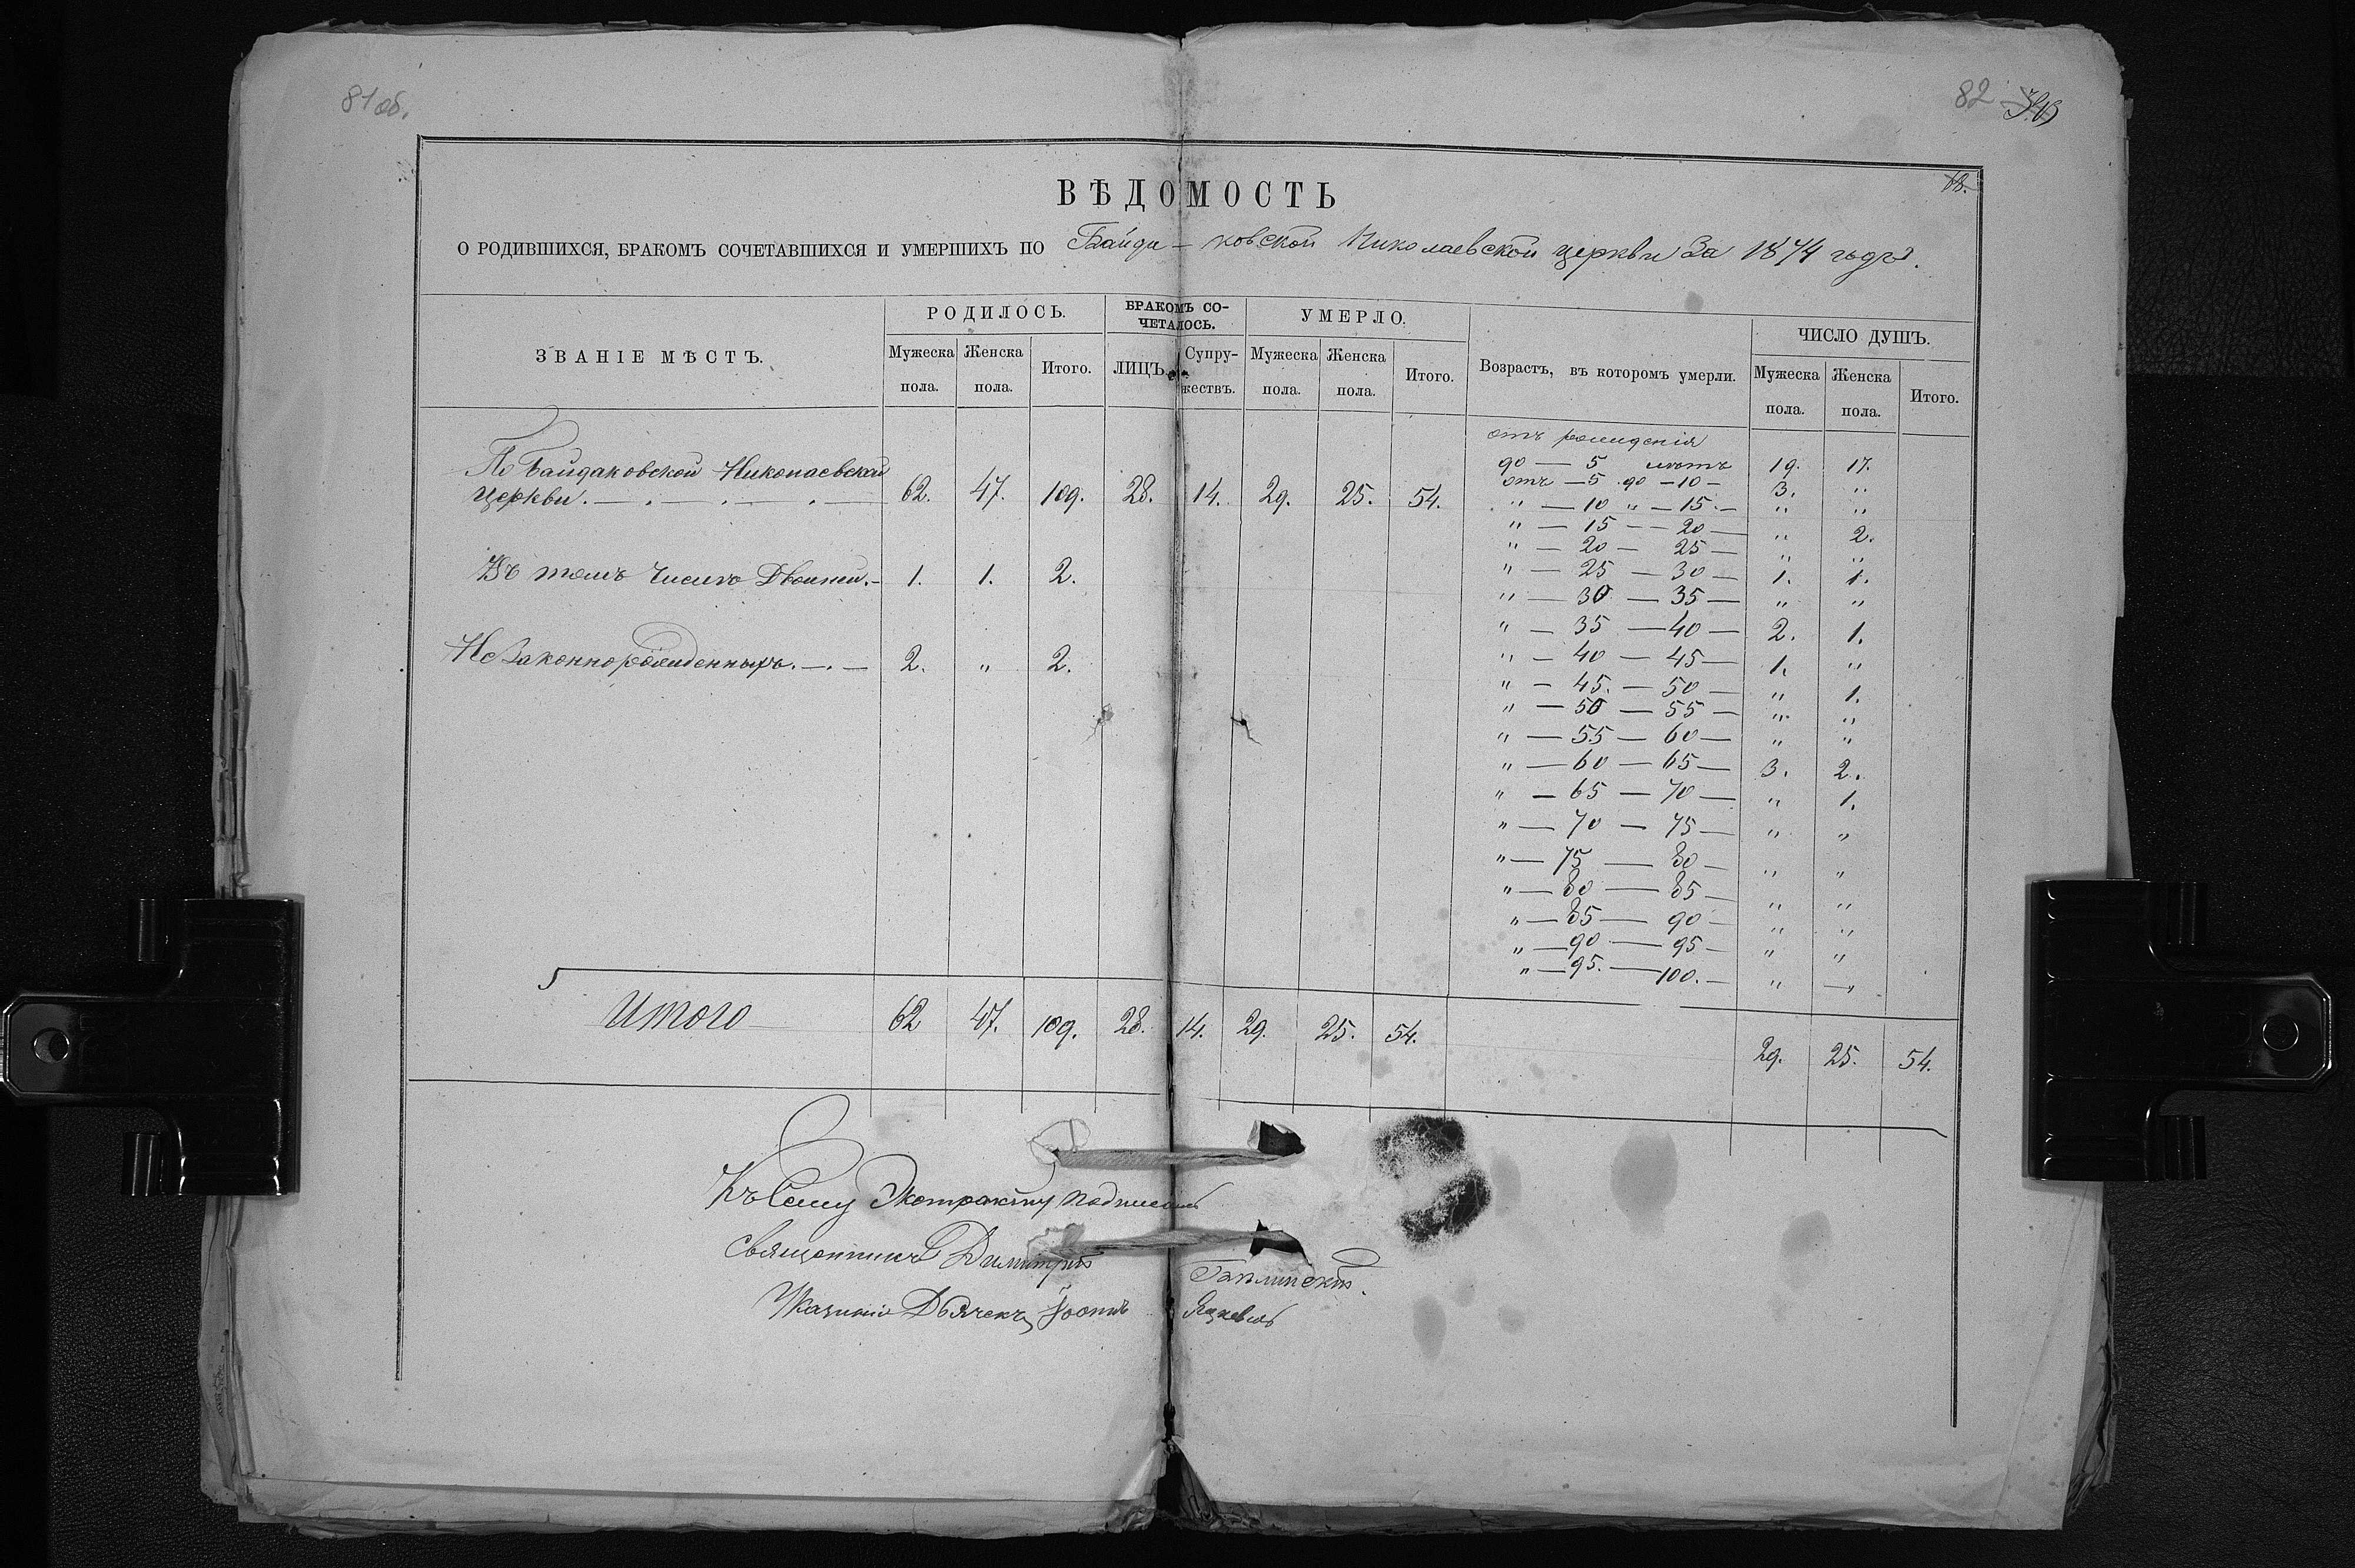 81 об.
82
18.
ВѢДОМОСТЬ
О РОДИВШИХСЯ, БРАКОМЪ СОЧЕТАВШИХСЯ И УМЕРШИХЪ ПО Байда- ковской Николаевской церкви За 1874 годъ.
ЗВАНІЕ МѢСТЪ. РОДИЛОСЬ. БРАКОМЪ СО-ЧЕТАЛОСЬ. УМЕРЛО. Возрастъ, въ которомъ умерли. ЧИСЛО ДУШЪ.
Мужеска пола. Женска пола. Итого. ЛИЦЪ. Супру-жествъ. Мужеска пола. Женска пола. Итого. Мужеска пола. Женска пола. Итого.
По Байдаковской Николаевской
Церкви. 62. 47. 109. 28. 14. 29. 25. 54.
Въ томъ Числѣ Двоини. 1. 1. 2.
НеЗаконнорожденныхъ. 2. " 2.
отъ рожденія
до — 5 летъ 19. 17.
отъ — 5 до — 10 — 3. "
" — 10 " — 15 — " "
" — 15 — 20 — " 2.
" — 20 — 25 — " "
" — 25 — 30 — 1. 1.
" — 30 — 35 — " "
" — 35 — 40 — 2. 1.
" — 40 — 45 — 1. "
" — 45. — 50 — " 1.
" — 50 — 55 — " "
" — 55 — 60 — " "
" — 60 — 65 — 3. 2.
" — 65 — 70 — " 1.
" — 70 — 75 — " "
" — 75 — 80 — " "
" — 80 — 85 — " "
" — 85 — 90 — " "
" — 90 — 95 — " "
" — 95. — 100. — " "
Итого 62 47. 109. 28. 14. 29. 25. 54. 29. 25. 54.
Къ Сему Экстракту подписалъ
Священникъ Димитрій
Указный Дьячекъ